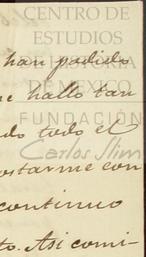 CENTRO DE
ESTUDIOS
han podido
DE HISTORIA
DE MEXICO
me hallo tan
FUNDACIÓN
do todo el
Carlos Slim
ostarme con
continuo
to. Asi comi-